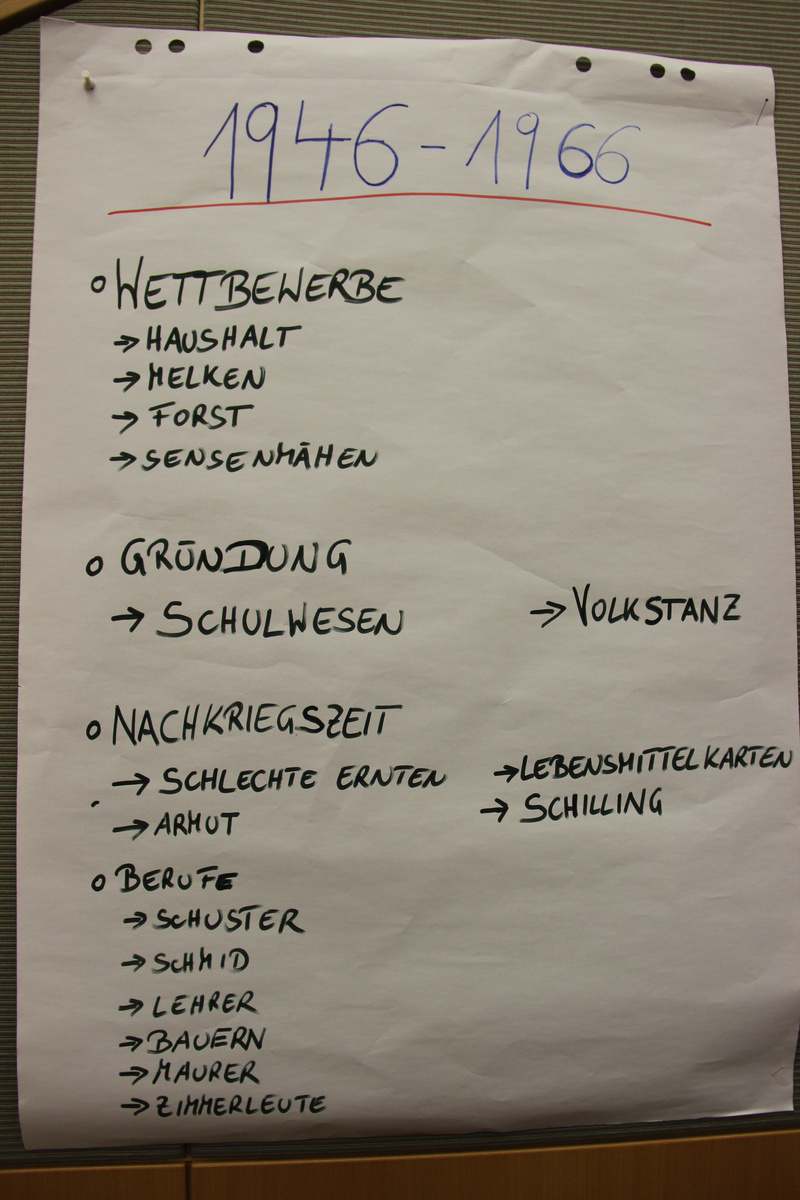 1946 - 1966
° WETTBEWERBE
→ HAUSHALT
→ MELKEN
→ FORST
→ SENSENMÄHEN
° GRÜNDUNG
→ SCHULWESEN → VOLKSTANZ
° NACHKRIEGSZEIT
→ SCHLECHTE ERNTEN → LEBENSMITTELKARTEN
→ ARMUT → SCHILLING
° BERUFE
→ SCHUSTER
→ SCHMID
→ LEHRER
→ BAUERN
→ MAURER
→ ZIMMERLEUTE